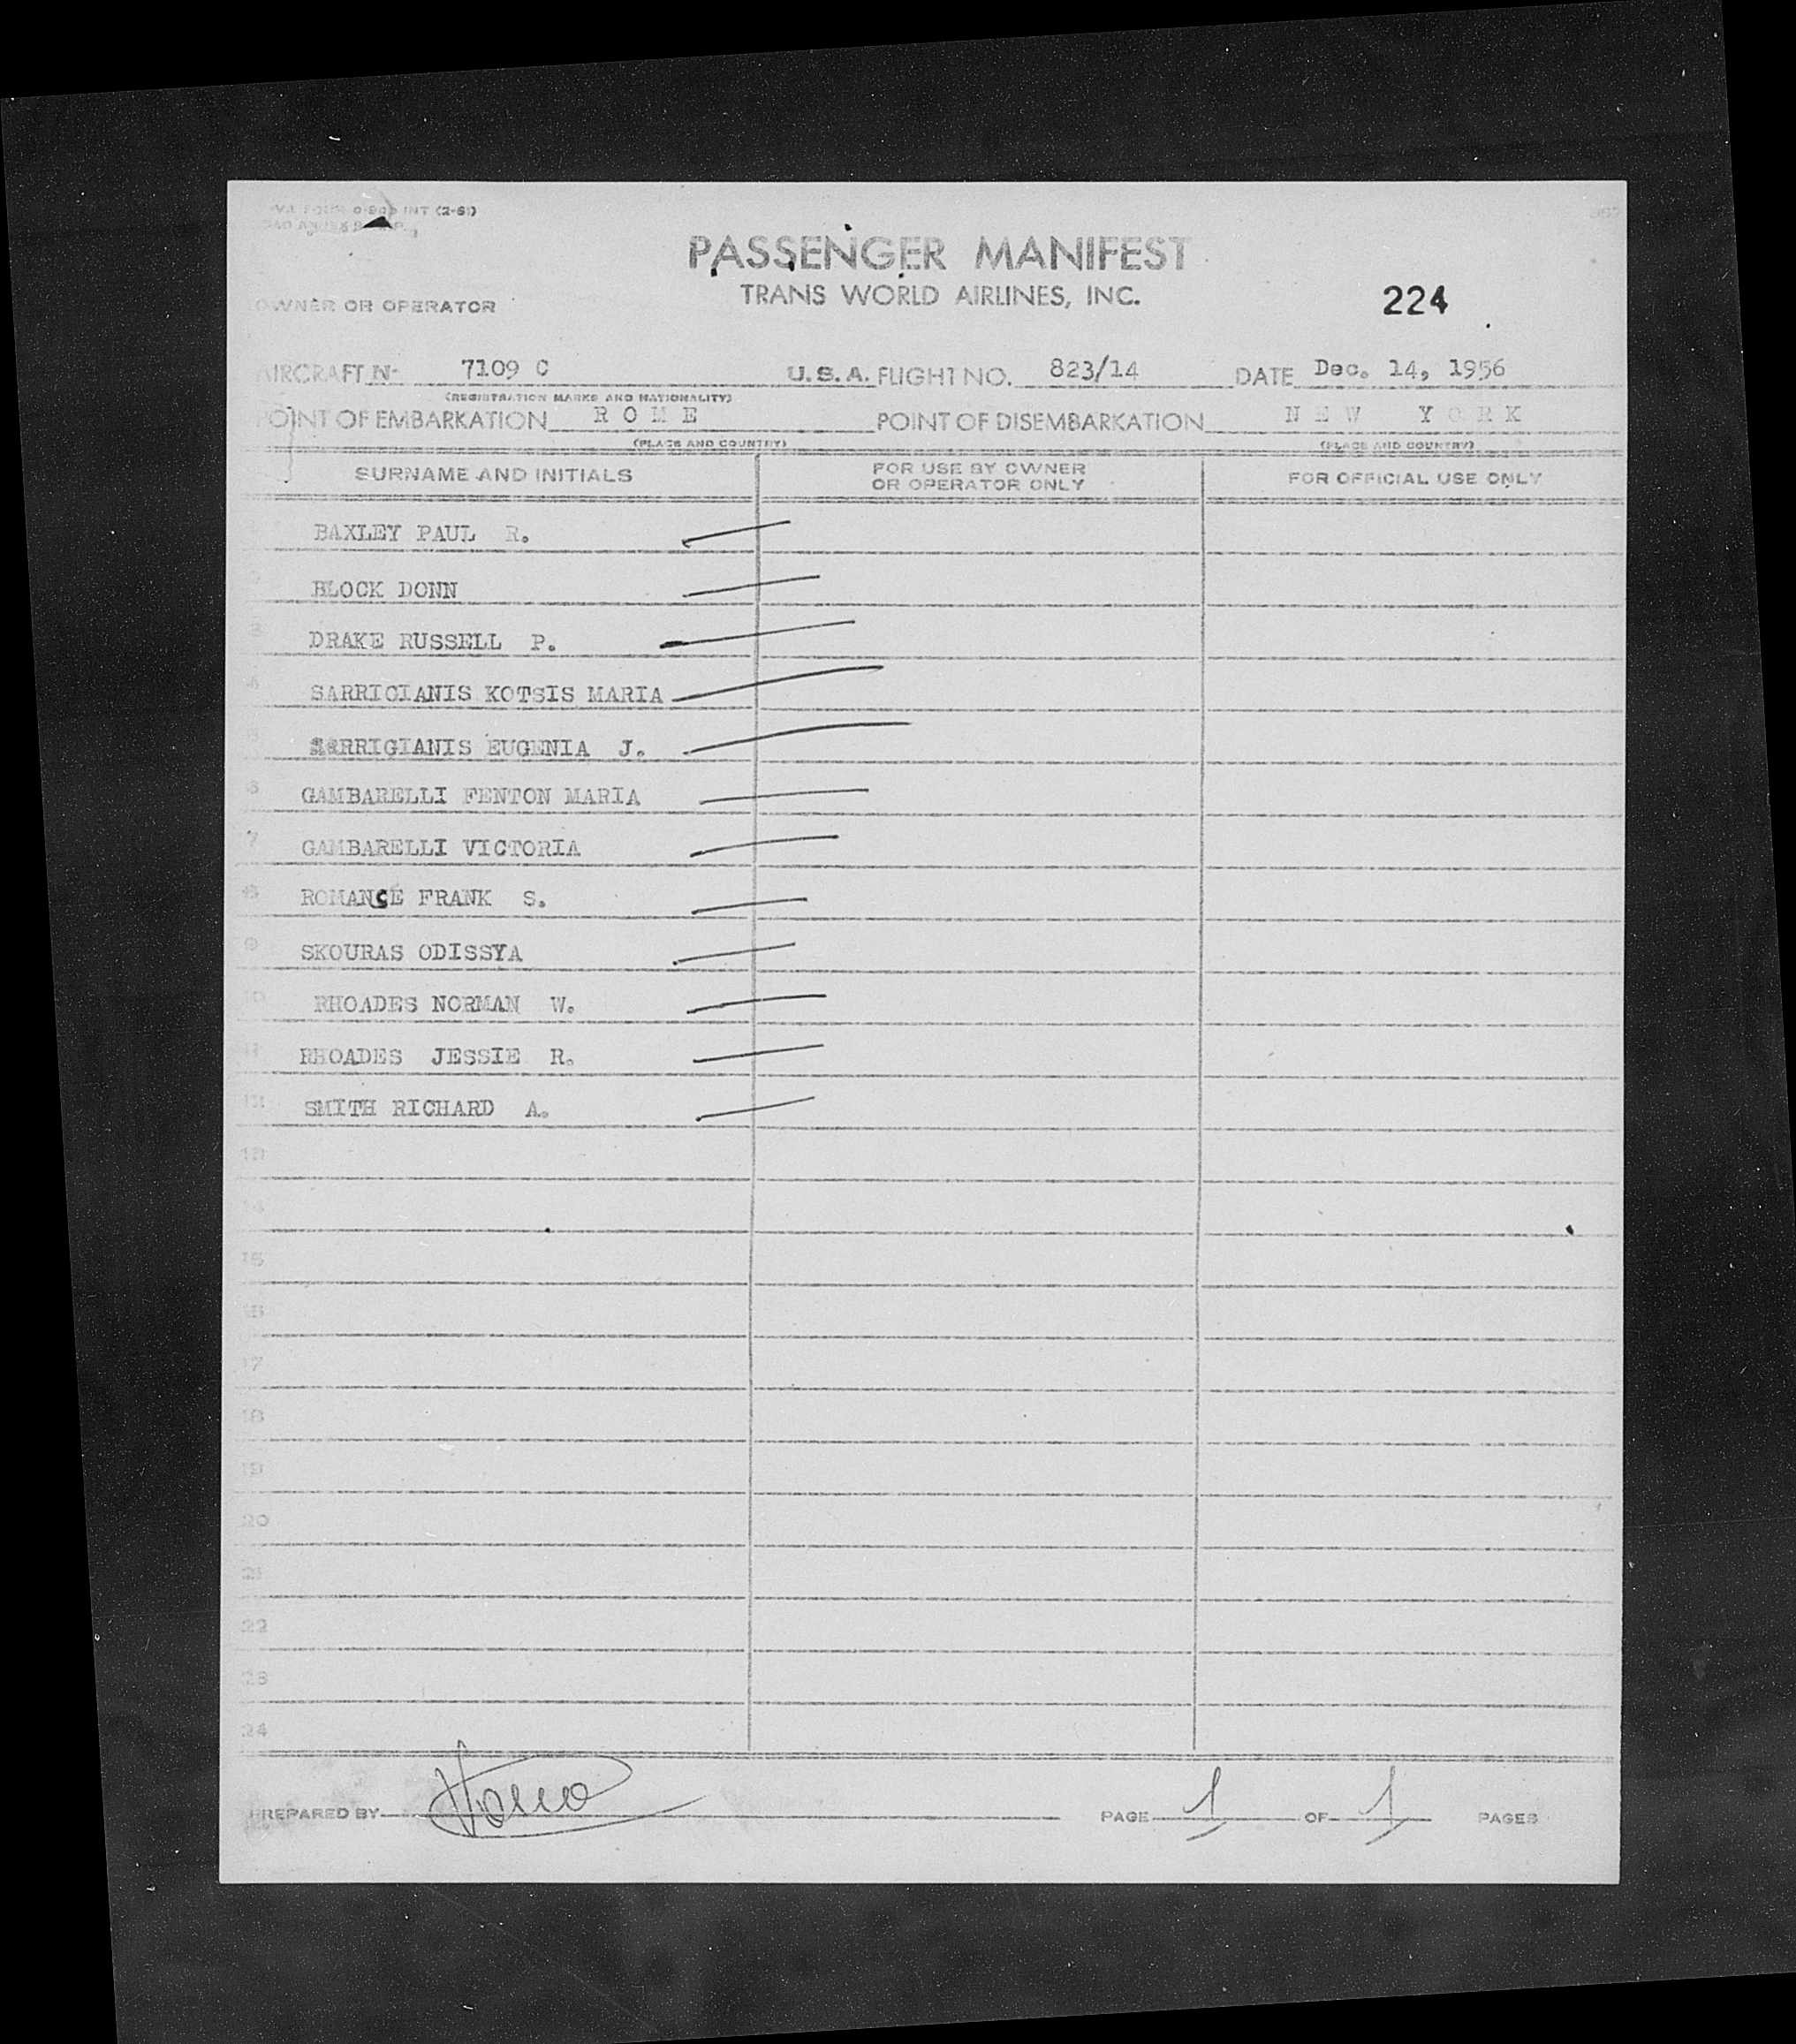 INT (2-51)
PASSENGER MANIFEST
OWNER OR OPERATOR
TRANS WORLD AIRLINES, INC.
224
AIRCRAFT N- 7109 C U.S.A. FLIGHT NO. 823/14 DATE Dec. 14, 1956
(REGISTRATION MARKS AND NATIONALITY)
POINT OF EMBARKATION R O M E POINT OF DISEMBARKATION N E W Y O R K
(PLACE AND COUNTRY) (PLACE AND COUNTRY)
SURNAME AND INITIALS FOR USE BY OWNER OR OPERATOR ONLY FOR OFFICIAL USE ONLY
BAXLEY PAUL R.
BLOCK DONN
3 DRAKE RUSSELL P.
4 SARRIGIANIS KOTSIS MARIA
5 SARRIGIANIS EUGENIA J.
6 GAMBARELLI FENTON MARIA
7 GAMBARELLI VICTORIA
8 ROMANCE FRANK S.
9 SKOURAS ODISSYA
10 RHOADES NORMAN W.
11 RHOADES JESSIE R.
SMITH RICHARD A.
15
16
17
18
19
20
21
22
23
24
PREPARED BY PAGE 1 OF 1 PAGES